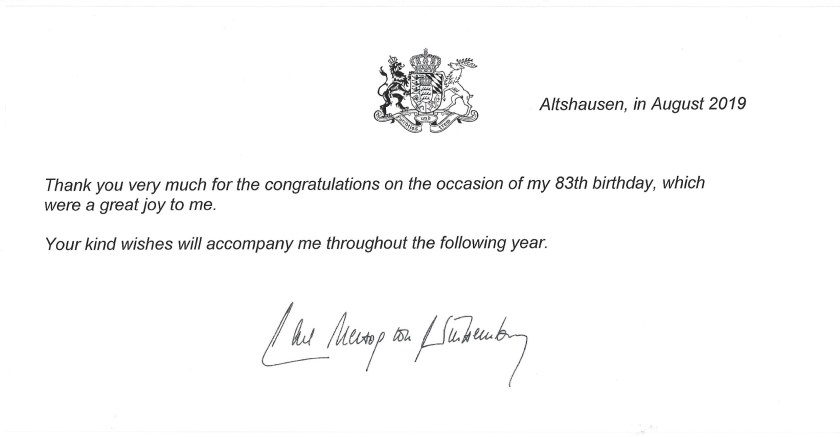 Furchtlos und treu
Altshausen, in August 2019
Thank you very much for the congratulations on the occasion of my 83th birthday, which
were a great joy to me.
Your kind wishes will accompany me throughout the following year.
Carl Herzog von Württemberg